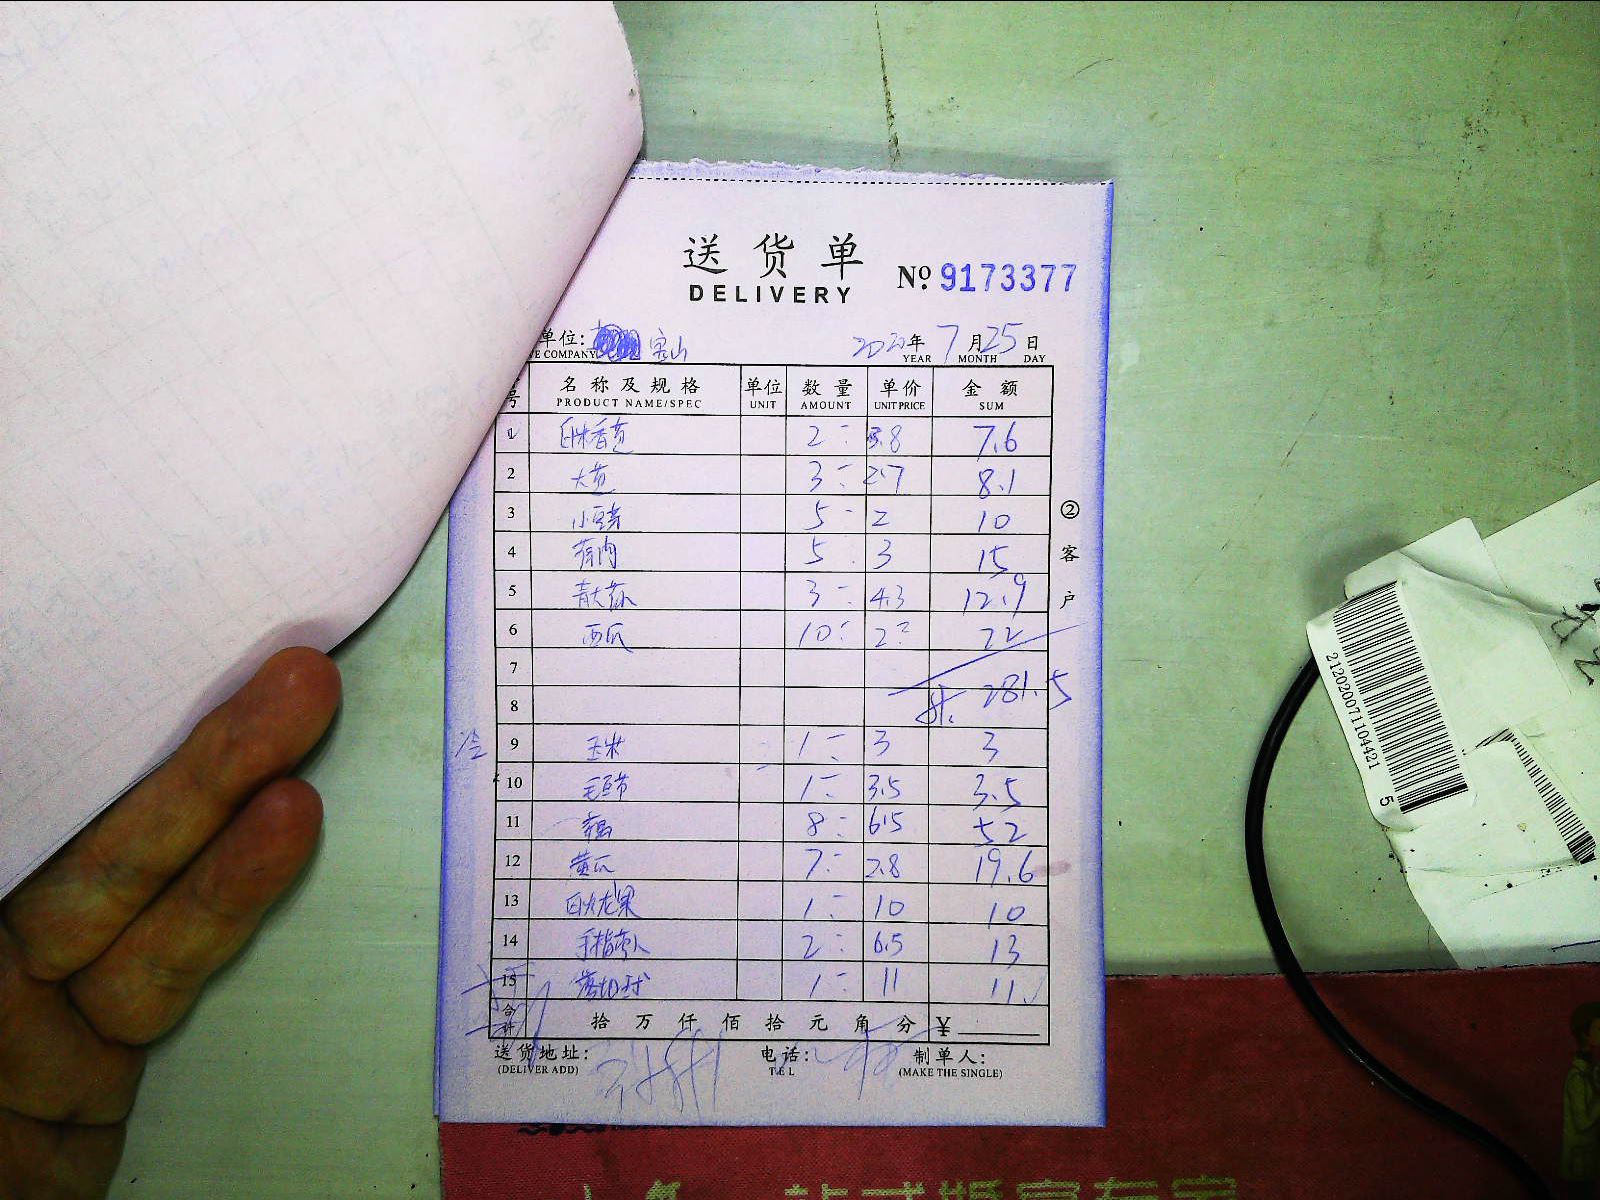 送货单
DELIVERY
No. 9173377
单位: 宝山 2020年 7月25日
VE COMPANY YEAR MONTH DAY
号 名称及规格 单位 数量 单价 金额
PRODUCT NAME/SPEC UNIT AMOUNT UNIT PRICE SUM
1 2 3.8 7.6
2 3 2.7 8.1
3 5 2 10
4 5 3 15
5 3 4.3 12.9
6 西瓜 10 2² 22
7
8 共. 281.5
9 玉米 1 3 3
10 毛豆节 1 3.5 3.5
11 8 6.5 52
12 黄瓜 7 2.8 19.6
13 白火龙果 1 10 10
14 2 6.5 13
15 1 11 11
合计 拾万仟佰拾元角分 ¥
送货地址: 电话: 制单人:
(DELIVER ADD) TEL (MAKE THE SINGLE)
②客户
2120200711044215